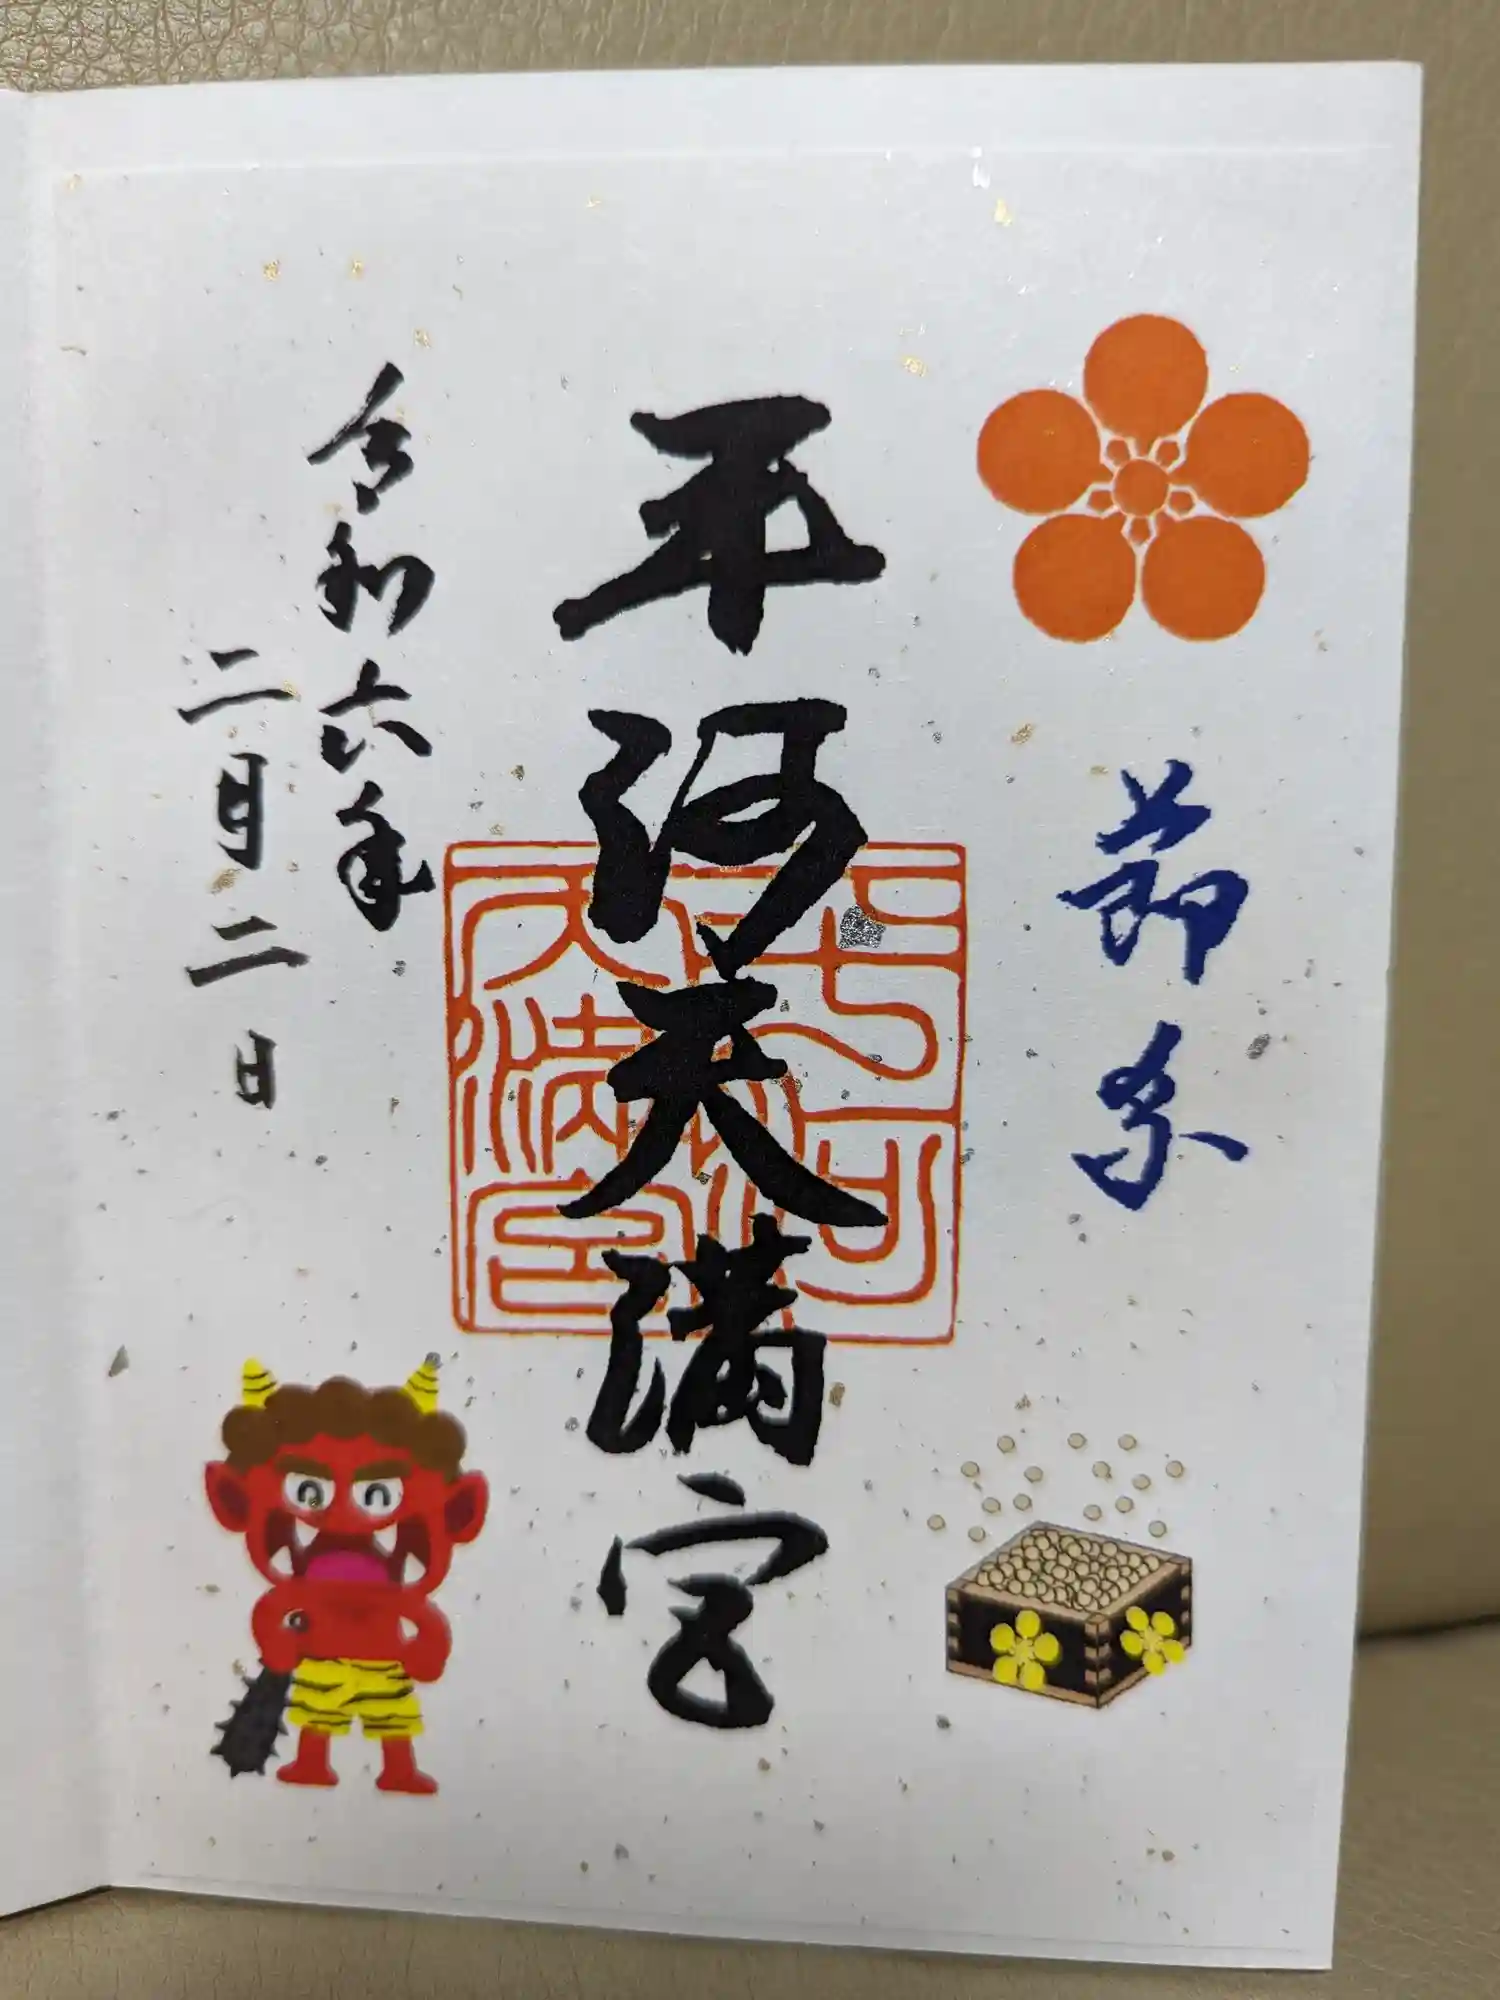 節分祭
平河天満宮
令和六年
二月二日
平河天満宮